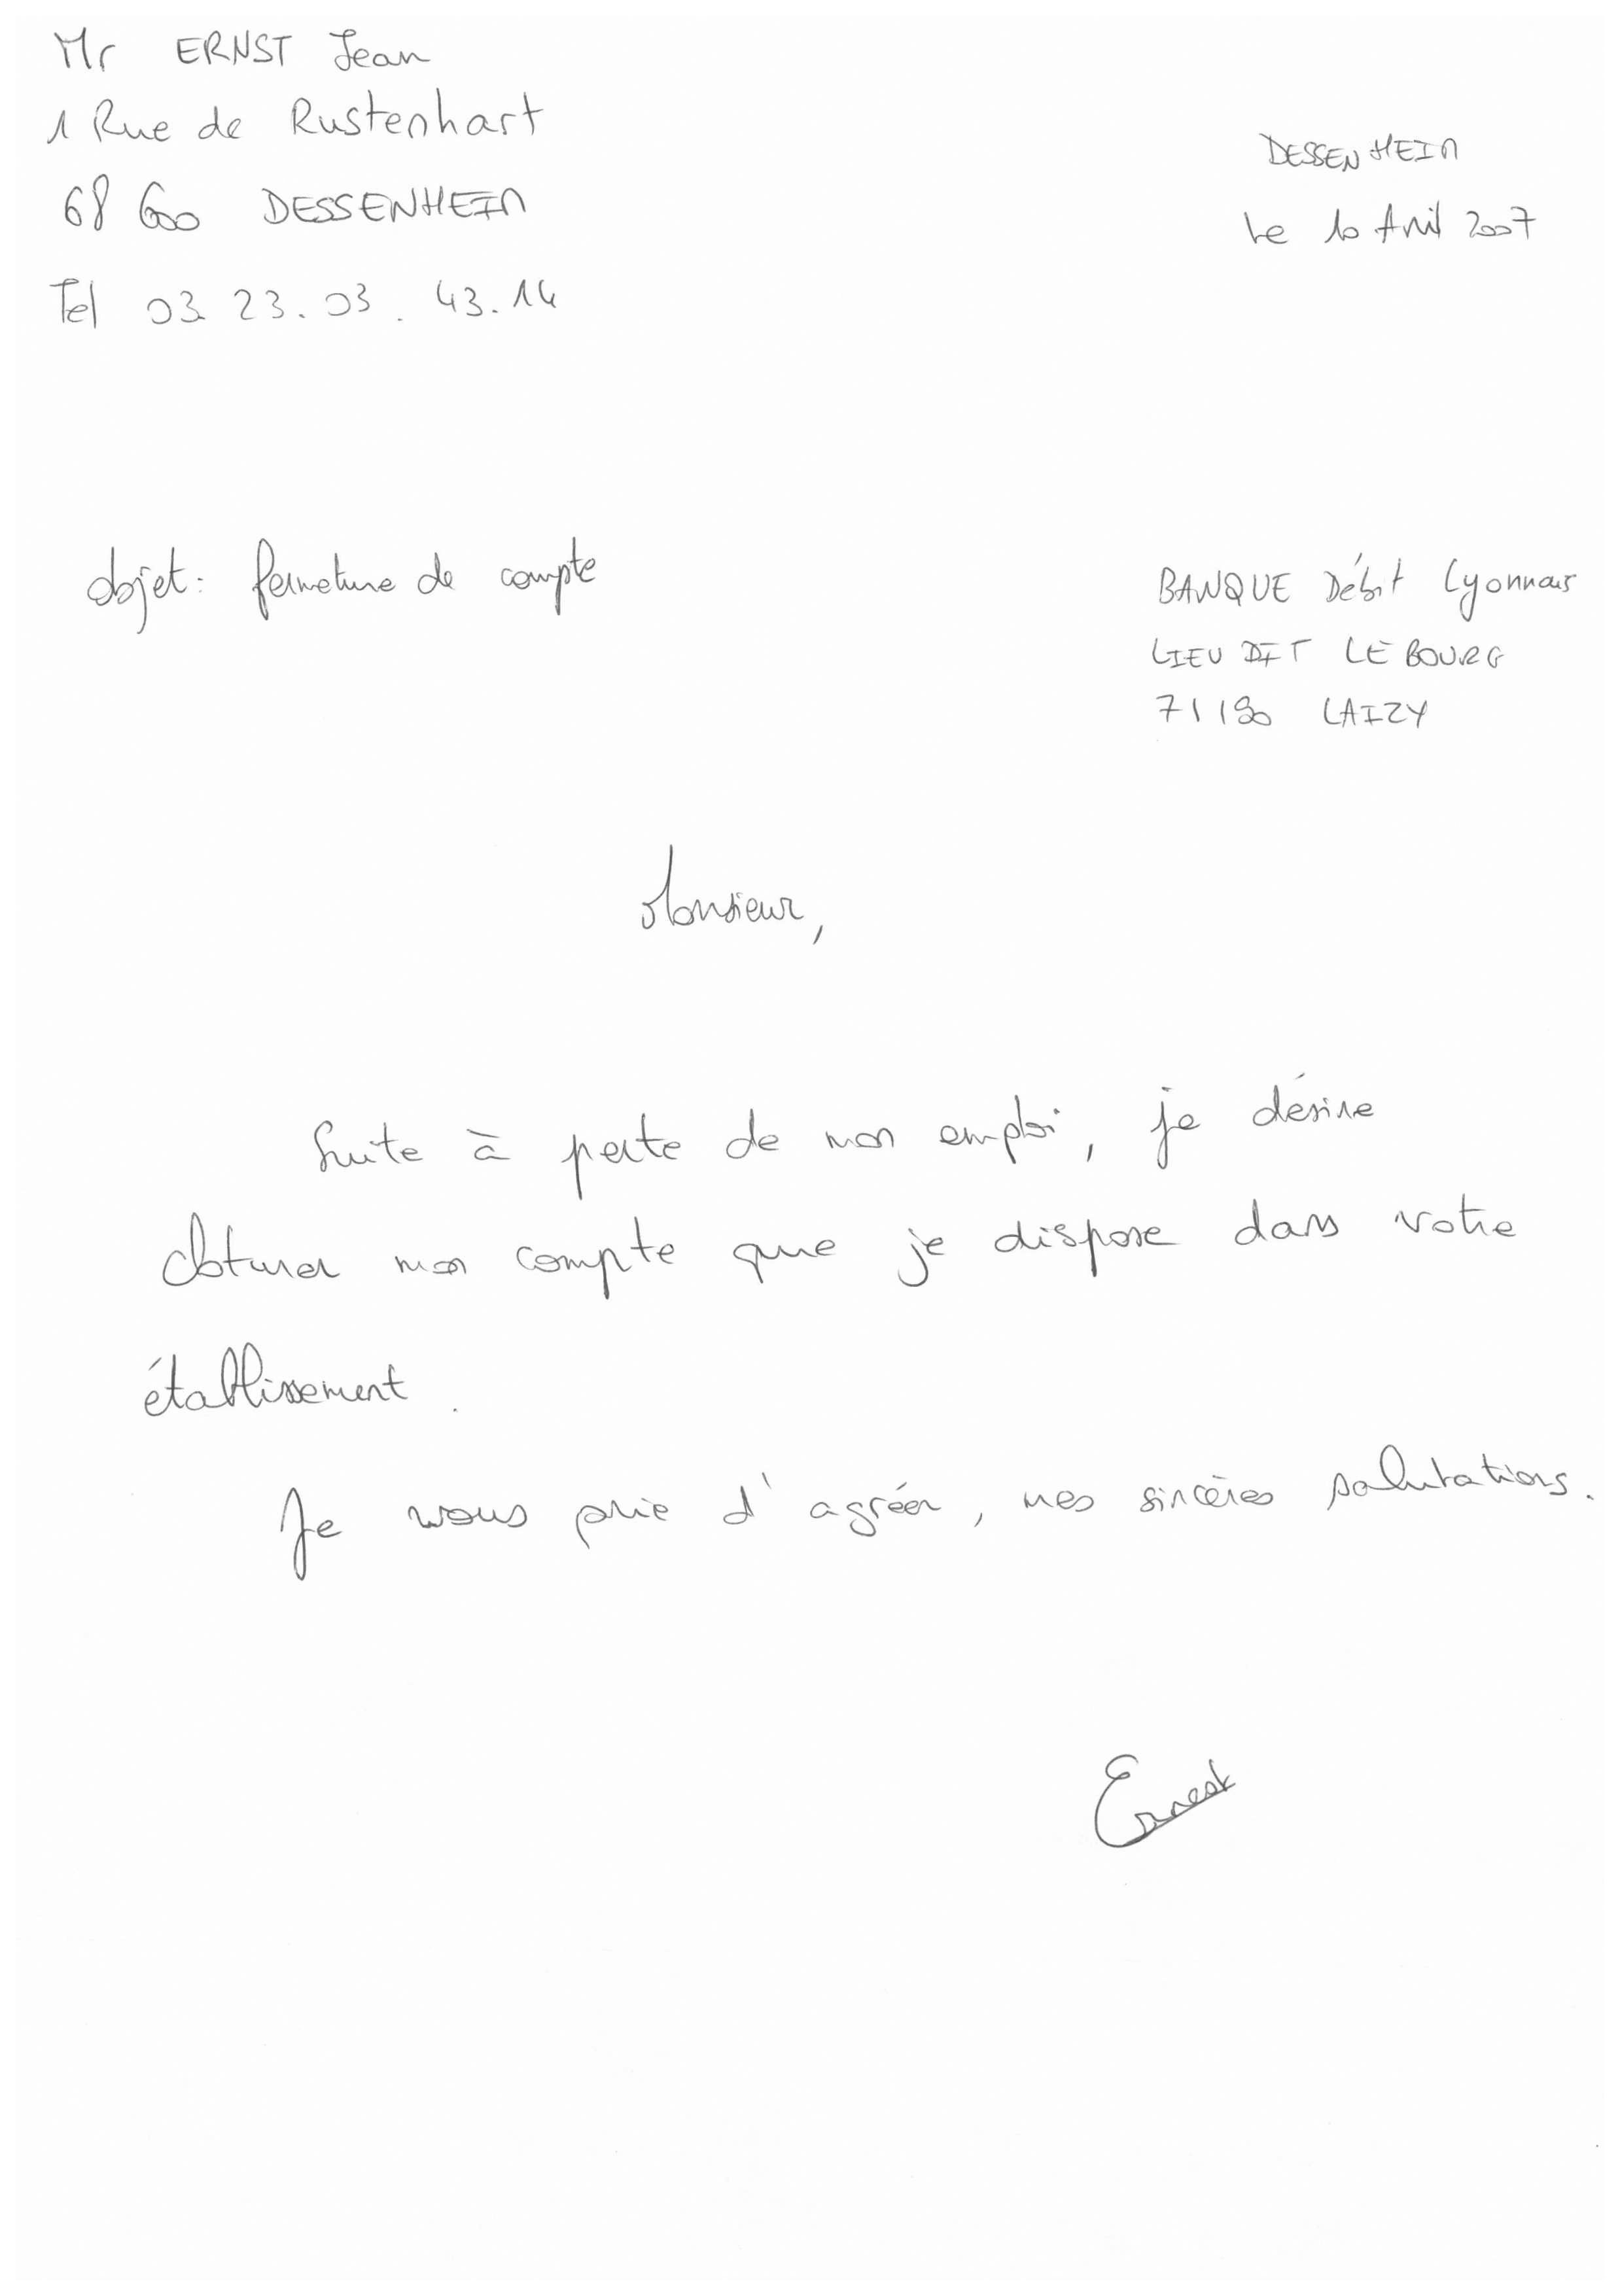 Mr ERNST Jean
1 Rue de Rustenhart
68 600 DESSENHEIM
Tel 03 23.03.43.14
DESSENHEIM
Le 10 Avril 2007
objet: fermeture de compte
BANQUE Débit Lyonnais
LIEU DIT LE BOURG
71190 LAIZY
Monsieur,
Suite à perte de mon emploi, je désire
cloturer mon compte que je dispose dans votre
établissement.
Je vous prie d'agréer, mes sincères salutations.
Ernest